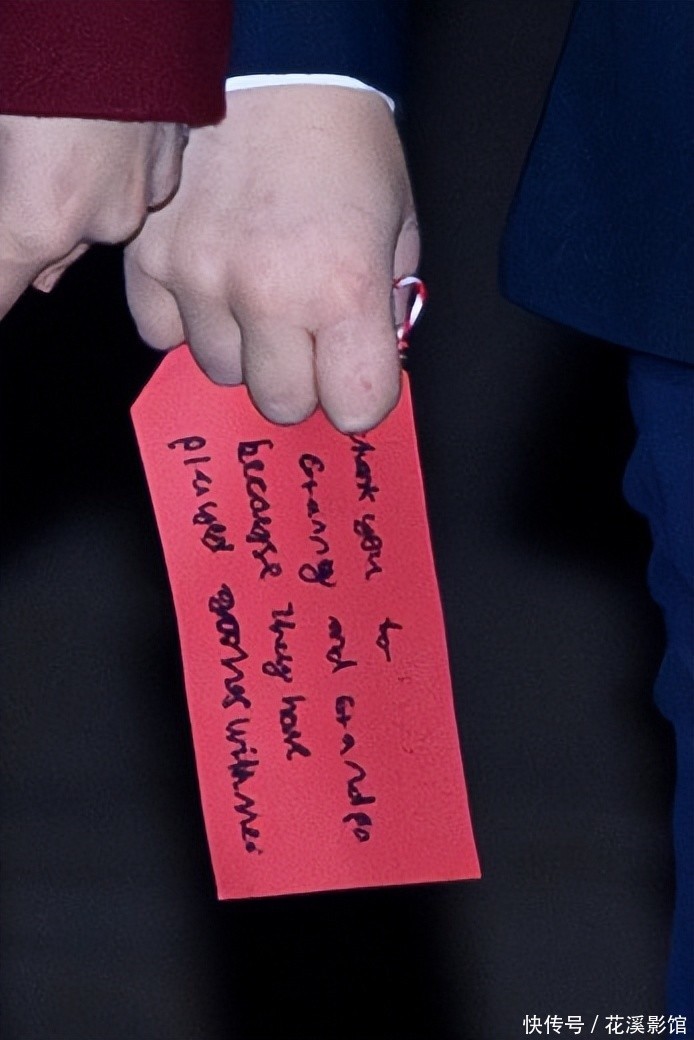 thank you to
Granny and Grandpa
because they have
played games with me.
快传号 / 花溪影馆